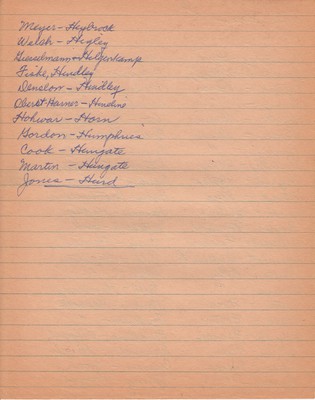 Meyer - Heybrock
Welsh - Higley
Gieselmann - Hilgenkamp
Fiske, Hindley
Denslow - Hindley
Oberst-Harner - Hindine
Hohwar - Horn
Gordon - Humphries
Cook - Hungate
Martin - Hungate
Jones - Hurd